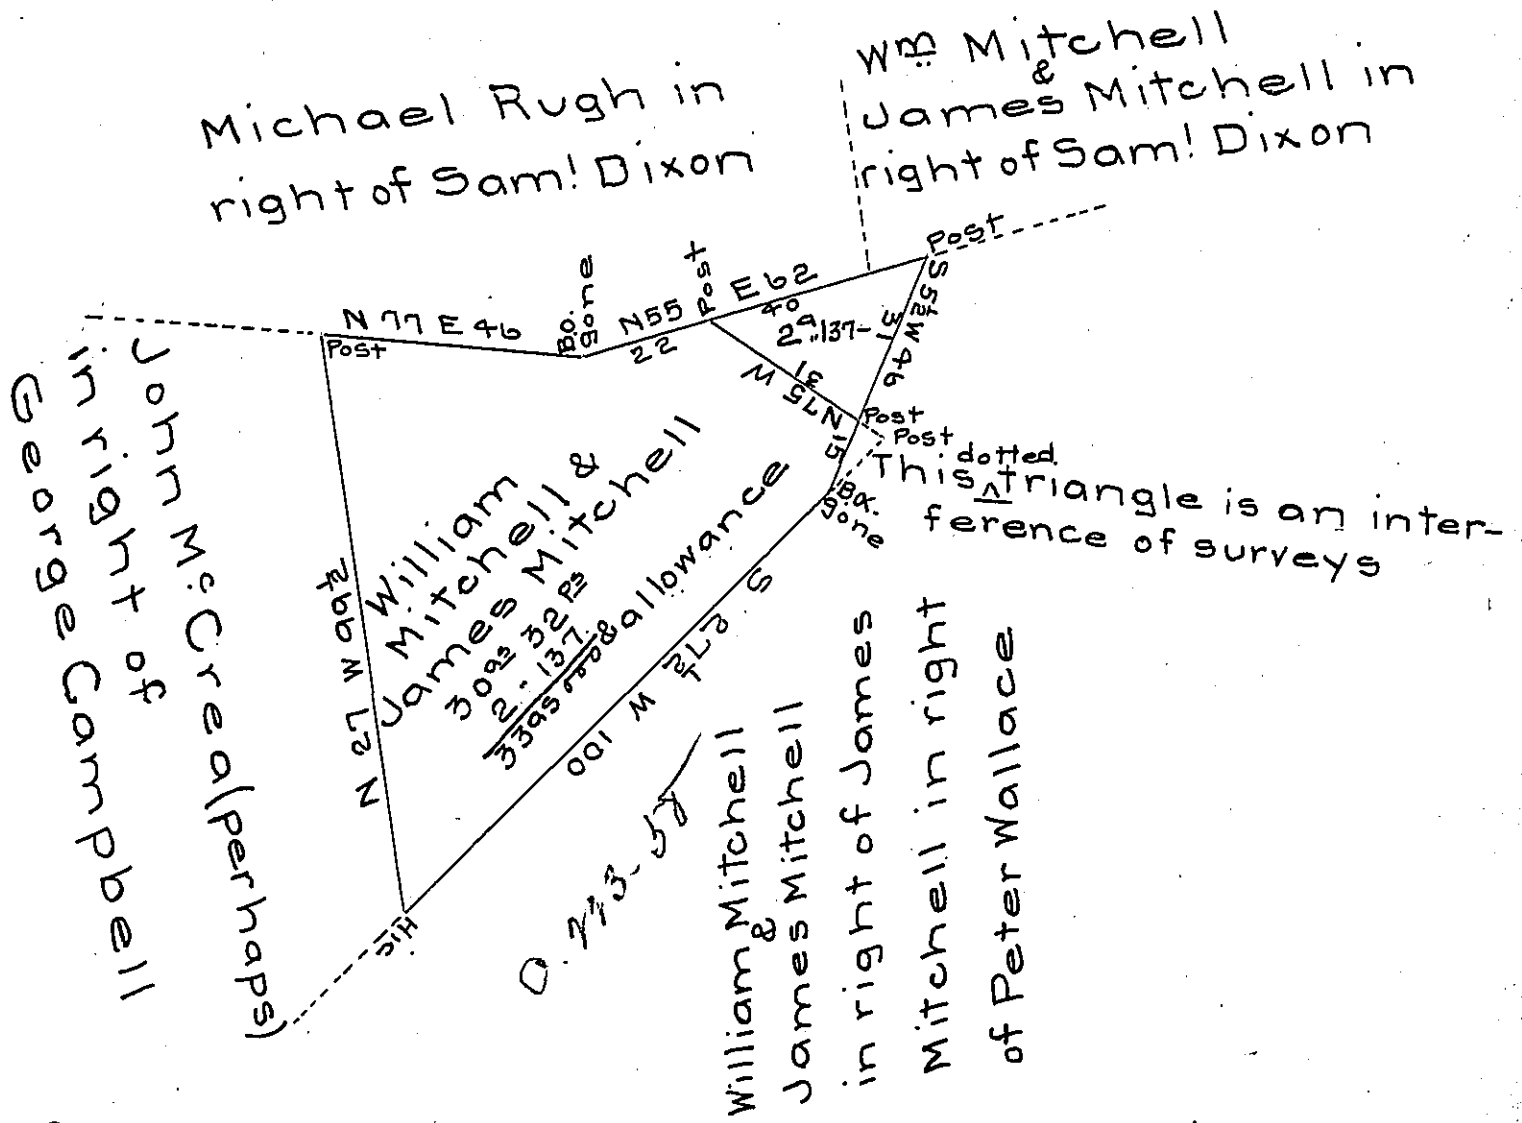 Michael Rugh in
right of Sam! Dixon
Wm Mitchell
&
James Mitchell in
right of Sam! Dixon
Post
N 77 E 46
Post
Bo.
gone
N55
22
Post
E 62
40
2a,,137-
S 5½ W 46
31
31
N75 W
Post
Post
15
Bo.
gone
dotted
This ^ triangle is an inter-
ference of surveys
John McCreal (perhaps)
in right of
George Campbell
N 27 W 99½
William
Mitchell &
James Mitchell
30as 32Ps
2 .. 137.
33as 000 & allowance
S 27½ W 100
Hic
William Mitchell
&
James Mitchell
in right of James
Mitchell in right
of Peter Wallace